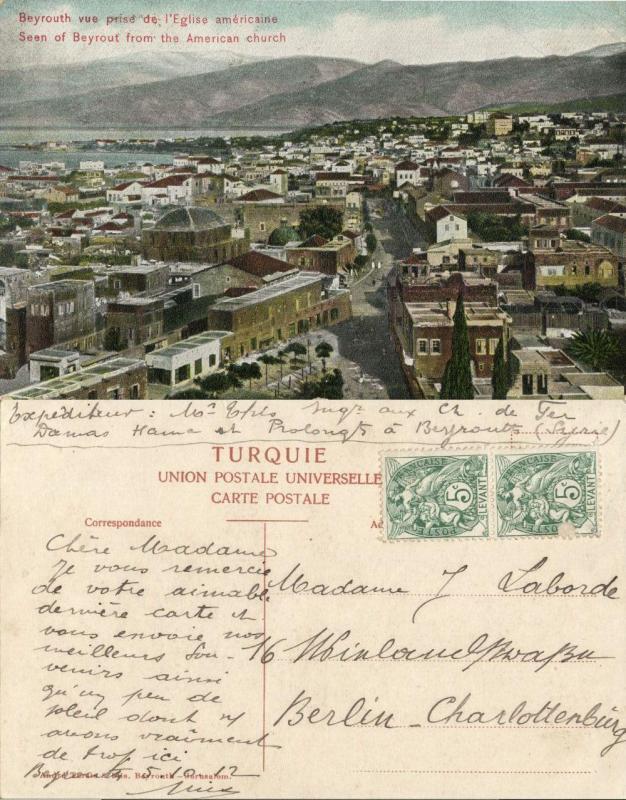 Beyrouth vue prise de l'Eglise américaine
Seen of Beyrout from the American church
Expéditeur: Mr Ingr aux Ch. de Fer
Damas Hama et Prolongts à Beyrouth (Syrie)
TURQUIE
UNION POSTALE UNIVERSELLE
CARTE POSTALE
Correspondance
FRANÇAISE
5c
LEVANT
POSTE
FRANÇAISE
5c
LEVANT
POSTE
Chère Madame
Je vous remercie
de votre aimable
dernière carte et
vous envoie nos
meilleurs sou-
venirs ainsi
qu'un peu de
soleil dont ns
avons vraiment
de trop ici
Beyrouth 5/10/12
Madame J Laborde
16
Berlin-Charlottenburg
Beyrouth - Jerusalem.